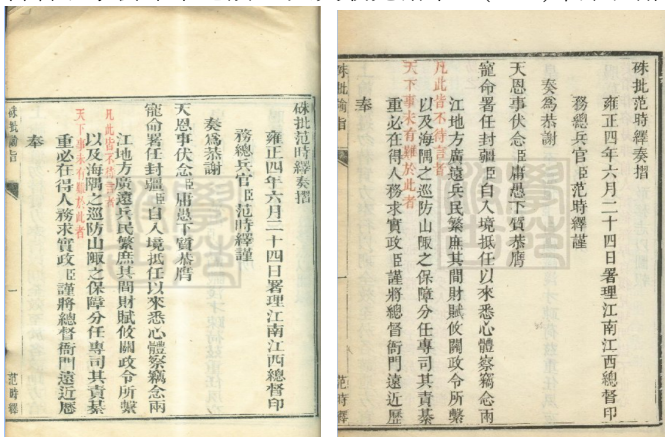 硃批范時繹奏摺
雍正四年六月二十四日署理江南江西總督印
務總兵官臣范時繹謹
奏爲恭謝
天恩事伏念臣庸愚下質恭膺
寵命署任封疆臣自入境抵任以來悉心體察竊念兩
江地方廣遠兵民繁庶其間財賦攸關政令所繫
凡此皆不待言者
以及海隅之巡防山陬之保障分任專司其責綦
天下事未有難於此者
重必在得人務求實政臣謹將總督衙門遠近歷
奉
硃批諭旨
一
范時繹
硃批范時繹奏摺
雍正四年六月二十四日署理江南江西總督印
務總兵官臣范時繹謹
奏爲恭謝
天恩事伏念臣庸愚下質恭膺
寵命署任封疆臣自入境抵任以來悉心體察竊念兩
江地方廣遠兵民繁庶其間財賦攸關政令所繫
凡此皆不待言者
以及海隅之巡防山陬之保障分任專司其責綦
天下事未有難於此者
重必在得人務求實政臣謹將總督衙門遠近歷
奉
硃批諭旨
一
范時繹